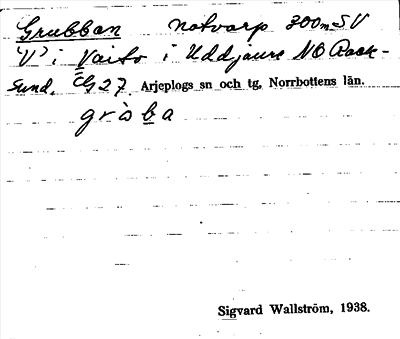 Grubban notvarp 300 m SV
"V" i Vaito i Uddjaure NB Rack-
sund. Eg 27. Arjeplogs sn och tg, Norrbottens län.
gràba
Sigvard Wallström, 1938.